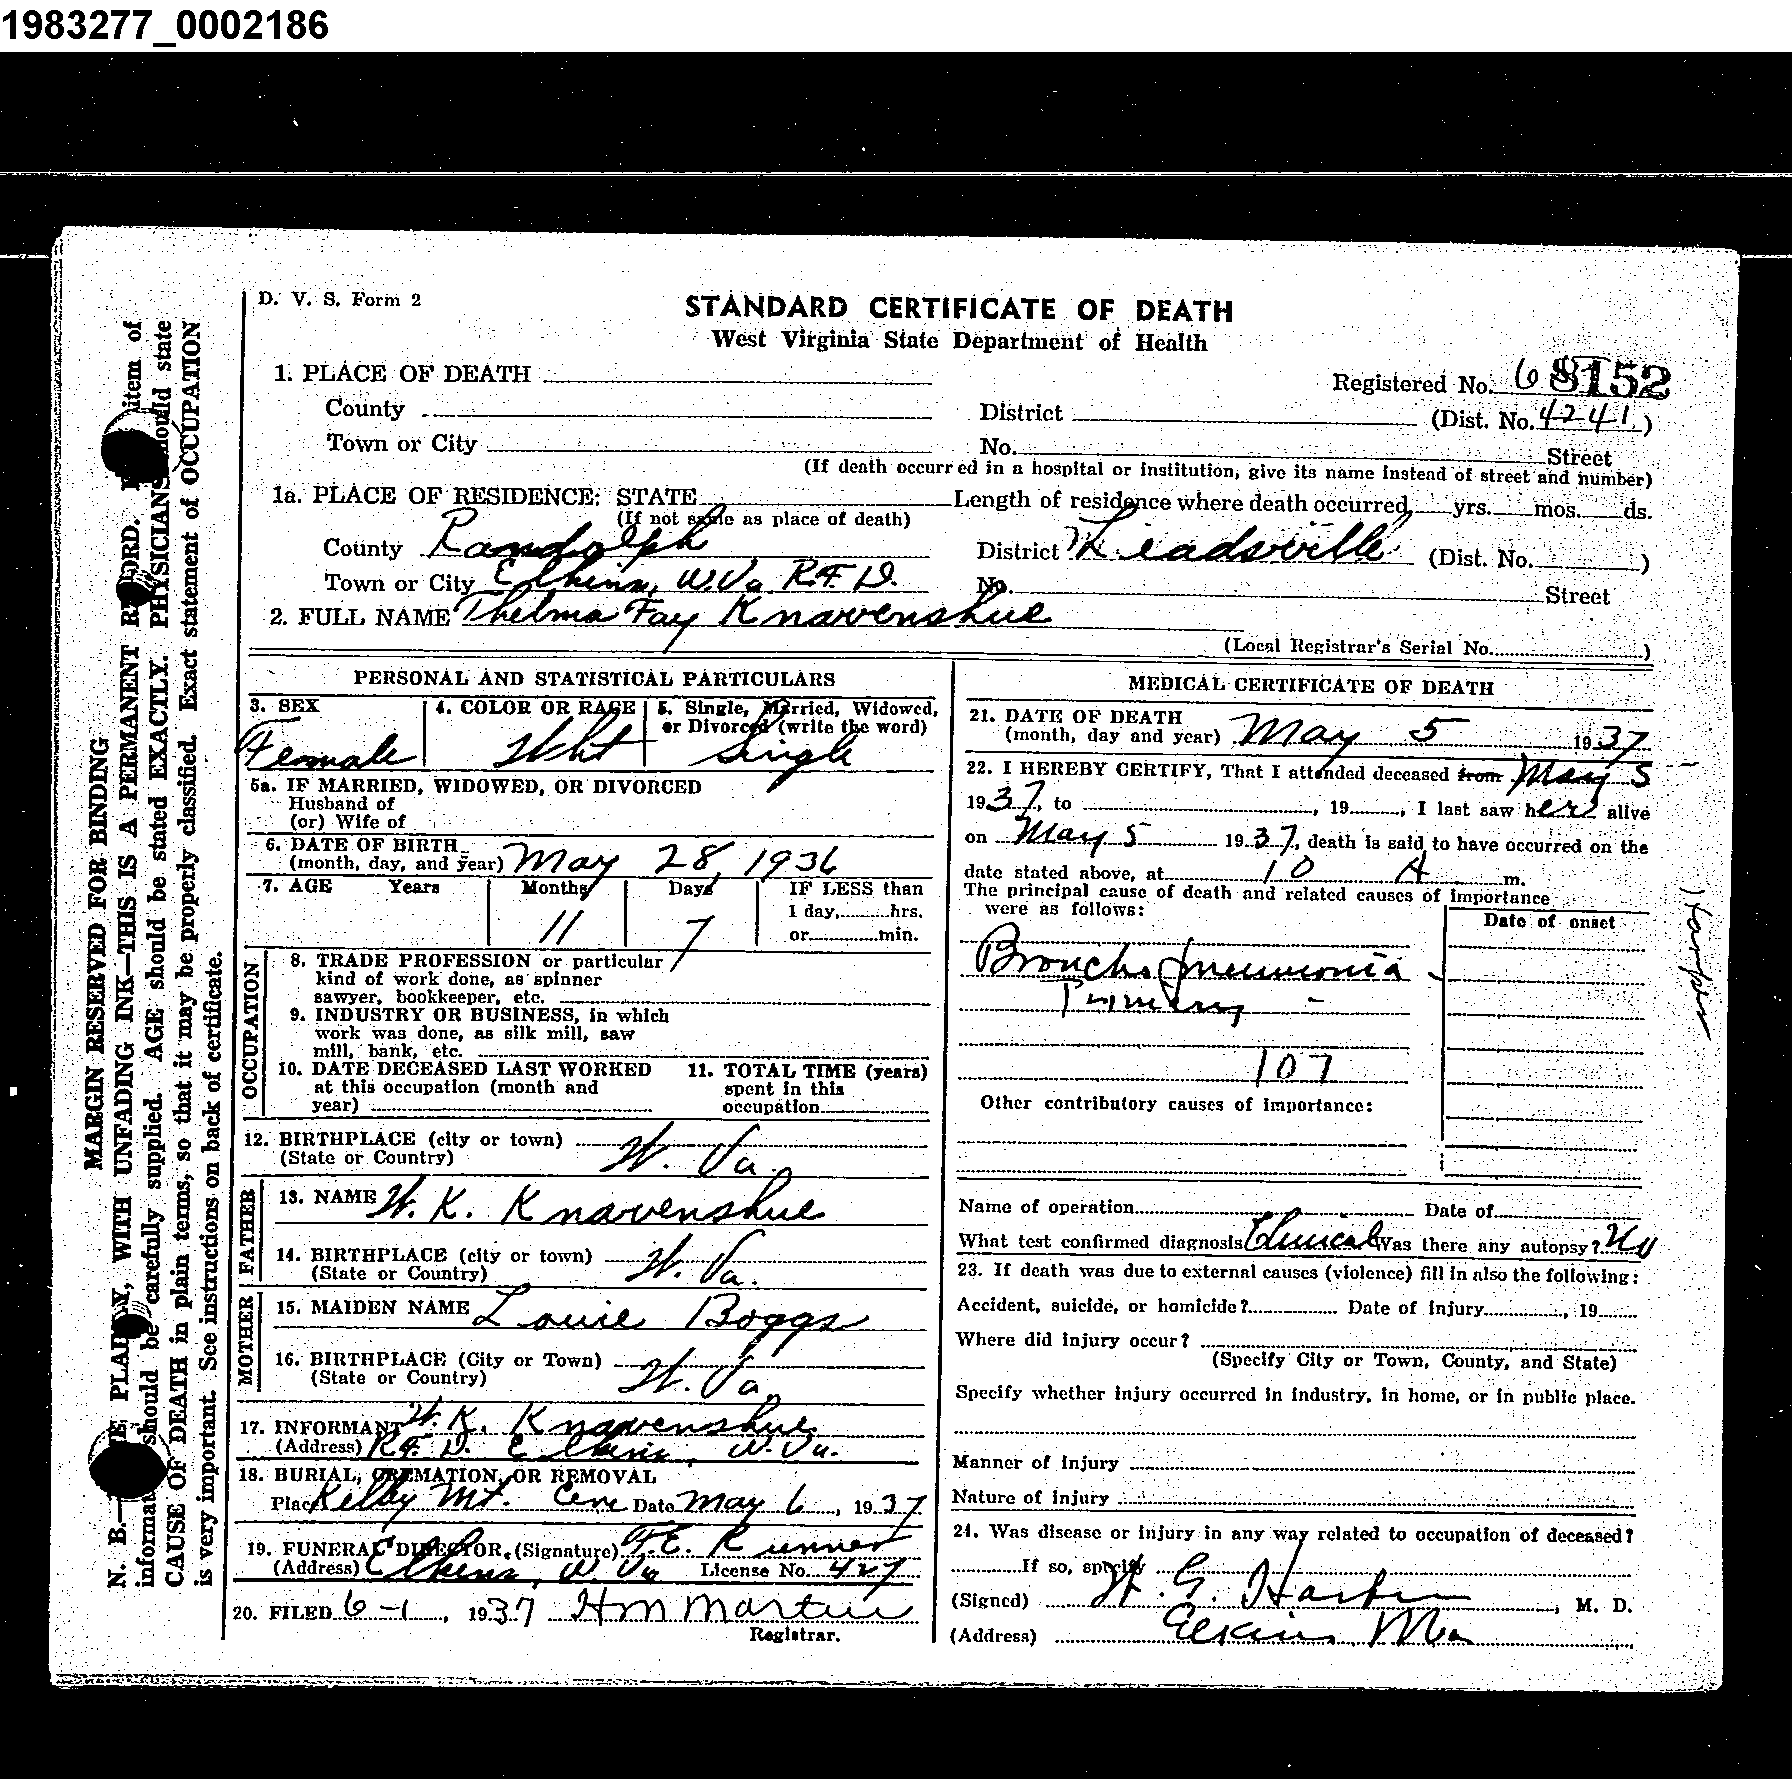 1983277_0002186
D. V. S. Form 2
STANDARD CERTIFICATE OF DEATH
West Virginia State Department of Health
1. PLACE OF DEATH
Registered No. 6 8152
County District (Dist. No. 4241)
Town or City No. Street
(If death occurred in a hospital or institution, give its name instead of street and number)
1a. PLACE OF RESIDENCE: STATE Length of residence where death occurred, yrs. mos. ds.
(If not same as place of death)
County Randolph District Leadsville (Dist. No. )
Town or City Elkins, W. Va R.F.D. No. Street
2. FULL NAME Thelma Fay Knavenshue
(Local Registrar's Serial No. )
PERSONAL AND STATISTICAL PARTICULARS
3. SEX Female
4. COLOR OR RACE Wht
5. Single, Married, Widowed, or Divorced (write the word) Single
5a. IF MARRIED, WIDOWED, OR DIVORCED
Husband of
(or) Wife of
6. DATE OF BIRTH
(month, day, and year) May 28, 1936
7. AGE Years Months Days IF LESS than
11 7 1 day, hrs.
or min.
OCCUPATION
8. TRADE PROFESSION or particular
kind of work done, as spinner
sawyer, bookkeeper, etc.
9. INDUSTRY OR BUSINESS, in which
work was done, as silk mill, saw
mill, bank, etc.
10. DATE DECEASED LAST WORKED
at this occupation (month and
year)
11. TOTAL TIME (years)
spent in this
occupation
12. BIRTHPLACE (city or town)
(State or Country) W. Va.
FATHER
13. NAME W. K. Knavenshue
14. BIRTHPLACE (city or town)
(State or Country) W. Va.
MOTHER
15. MAIDEN NAME Louie Boggs
16. BIRTHPLACE (City or Town)
(State or Country) W. Va.
17. INFORMANT W. K. Knavenshue
(Address) R.F.D. Elkins, W. Va.
18. BURIAL, CREMATION, OR REMOVAL
Place Kelby Mt. Cem Date May 6, 1937
19. FUNERAL DIRECTOR, (Signature) F.E. Runner
(Address) Elkins, W. Va License No. 427
20. FILED 6-1, 1937 H M Martin
Registrar.
MEDICAL CERTIFICATE OF DEATH
21. DATE OF DEATH
(month, day and year) May 5 1937
22. I HEREBY CERTIFY, That I attended deceased from May 5
1937, to , 19 , I last saw her alive
on May 5 1937, death is said to have occurred on the
date stated above, at 10 A m.
The principal cause of death and related causes of importance
were as follows:
Date of onset
Broncho pneumonia
Primary
107
Other contributory causes of importance:
Name of operation Date of
What test confirmed diagnosis Clinical Was there any autopsy? No
23. If death was due to external causes (violence) fill in also the following:
Accident, suicide, or homicide? Date of injury , 19
Where did injury occur?
(Specify City or Town, County, and State)
Specify whether injury occurred in industry, in home, or in public place.
Manner of injury
Nature of injury
24. Was disease or injury in any way related to occupation of deceased?
If so, specify
(Signed) W. G. Harper, M. D.
(Address) Elkins W Va
Harper
MARGIN RESERVED FOR BINDING
N. B.— PLAINLY, WITH UNFADING INK—THIS IS A PERMANENT RECORD. item of
information should be carefully supplied. AGE should be stated EXACTLY. PHYSICIANS should state
CAUSE OF DEATH in plain terms, so that it may be properly classified. Exact statement of OCCUPATION
is very important. See instructions on back of certificate.